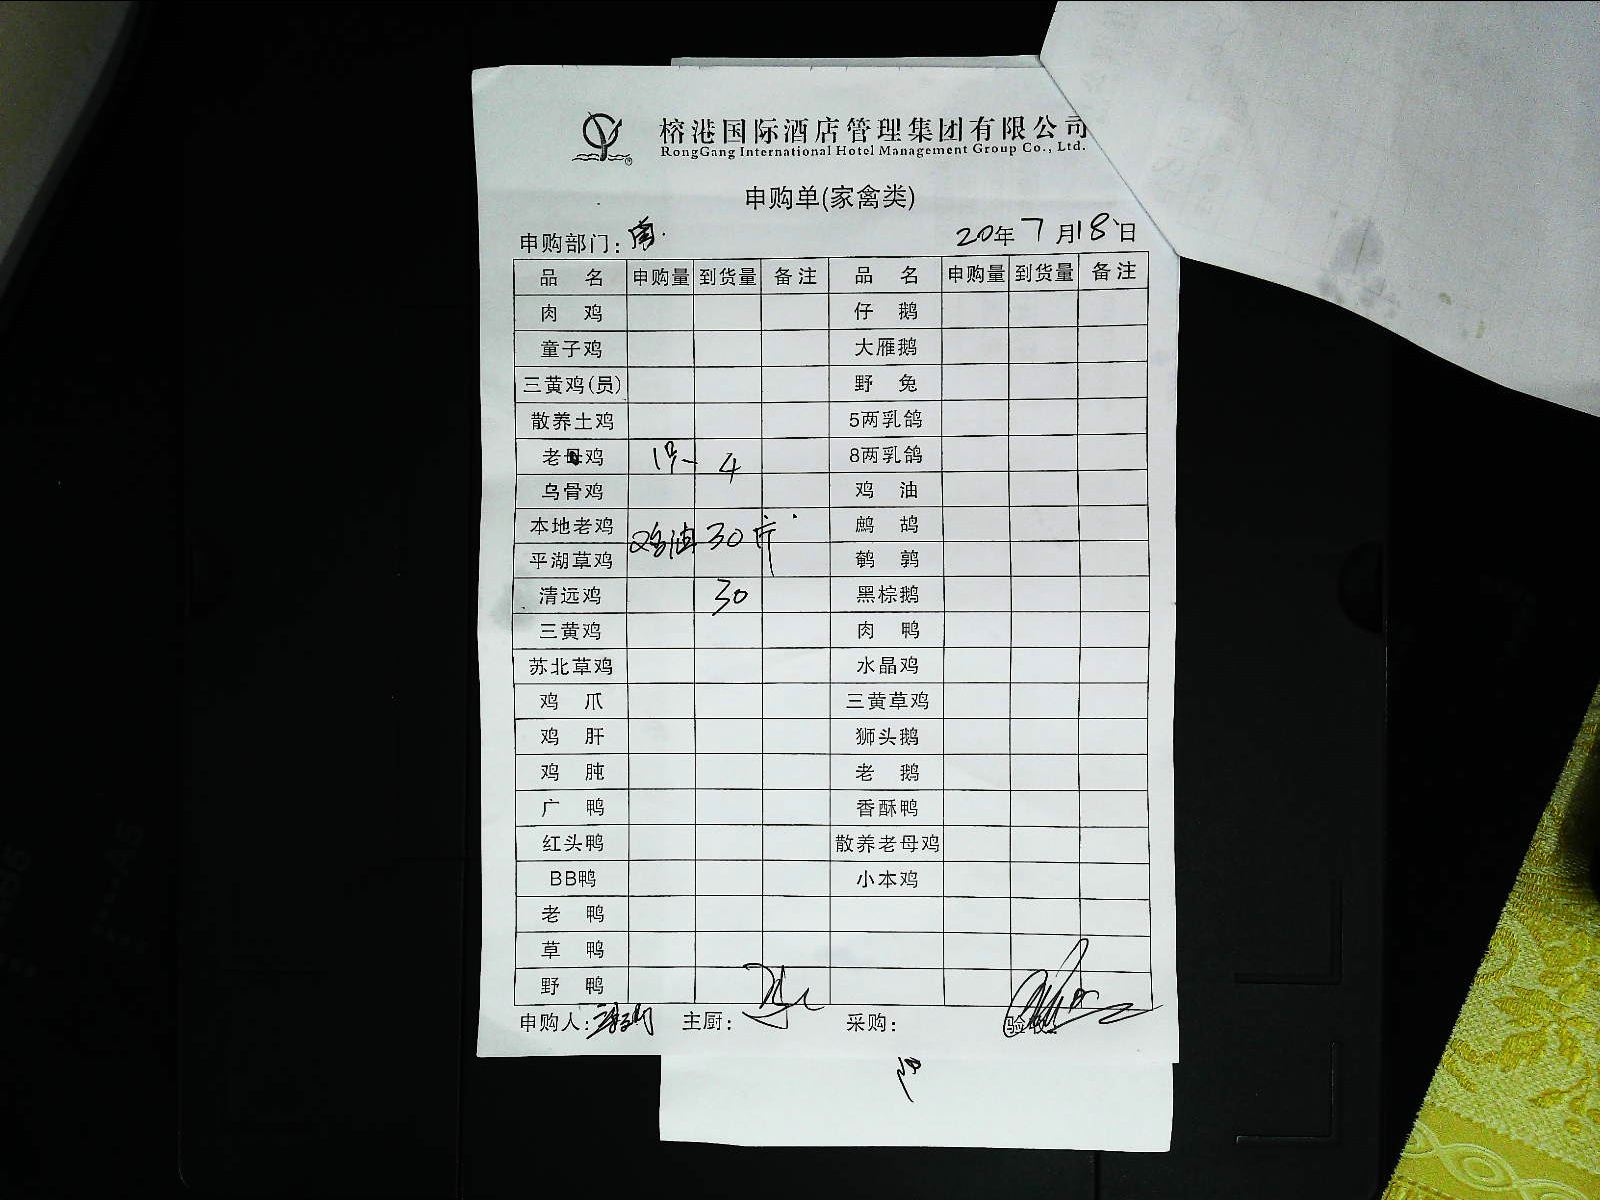 榕港国际酒店管理集团有限公司
RongGang International Hotel Management Group Co., Ltd.
申购单(家禽类)
申购部门: 20年7月18日
品名 申购量 到货量 备注 品名 申购量 到货量 备注
肉鸡 仔鹅
童子鸡 大雁鹅
三黄鸡(员) 野兔
散养土鸡 5两乳鸽
老母鸡 4 8两乳鸽
乌骨鸡 鸡油
本地老鸡 鸡油30斤 鹧鸪
平湖草鸡 鹌鹑
清远鸡 30 黑棕鹅
三黄鸡 肉鸭
苏北草鸡 水晶鸡
鸡爪 三黄草鸡
鸡肝 狮头鹅
鸡肫 老鹅
广鸭 香酥鸭
红头鸭 散养老母鸡
BB鸭 小本鸡
老鸭
草鸭
野鸭
申购人: 主厨: 采购: 验